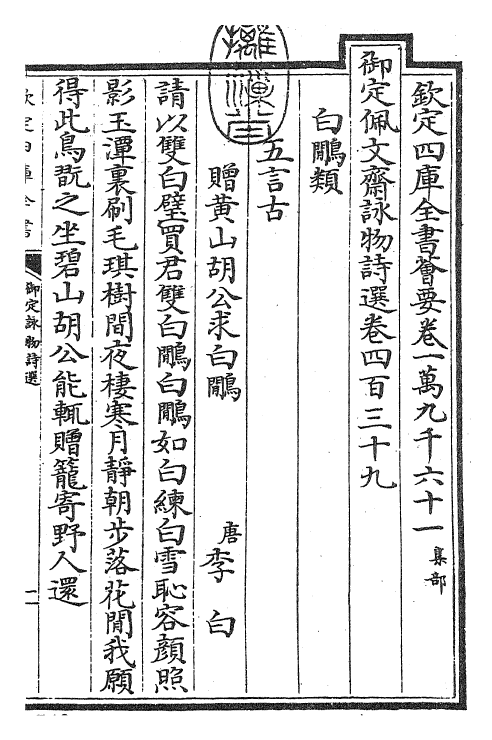 欽定四庫全書薈要卷一萬九千六十一 集部
御定佩文齋詠物詩選卷四百三十九
白鷴類
五言古
贈黄山胡公求白鷴 唐 李白
請以雙白璧買君雙白鷴白鷴如白練白雪恥容顔照
影玉潭裏刷毛琪樹間夜棲寒月靜朝步落花閒我願
得此鳥翫之坐碧山胡公能輒贈籠寄野人還
御定詠物詩選
一